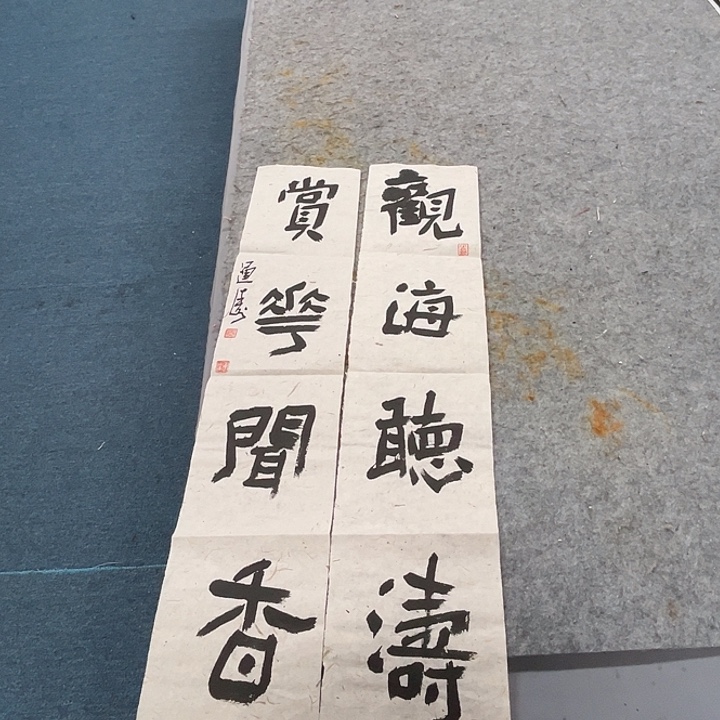 觀海聽濤
賞華聞香